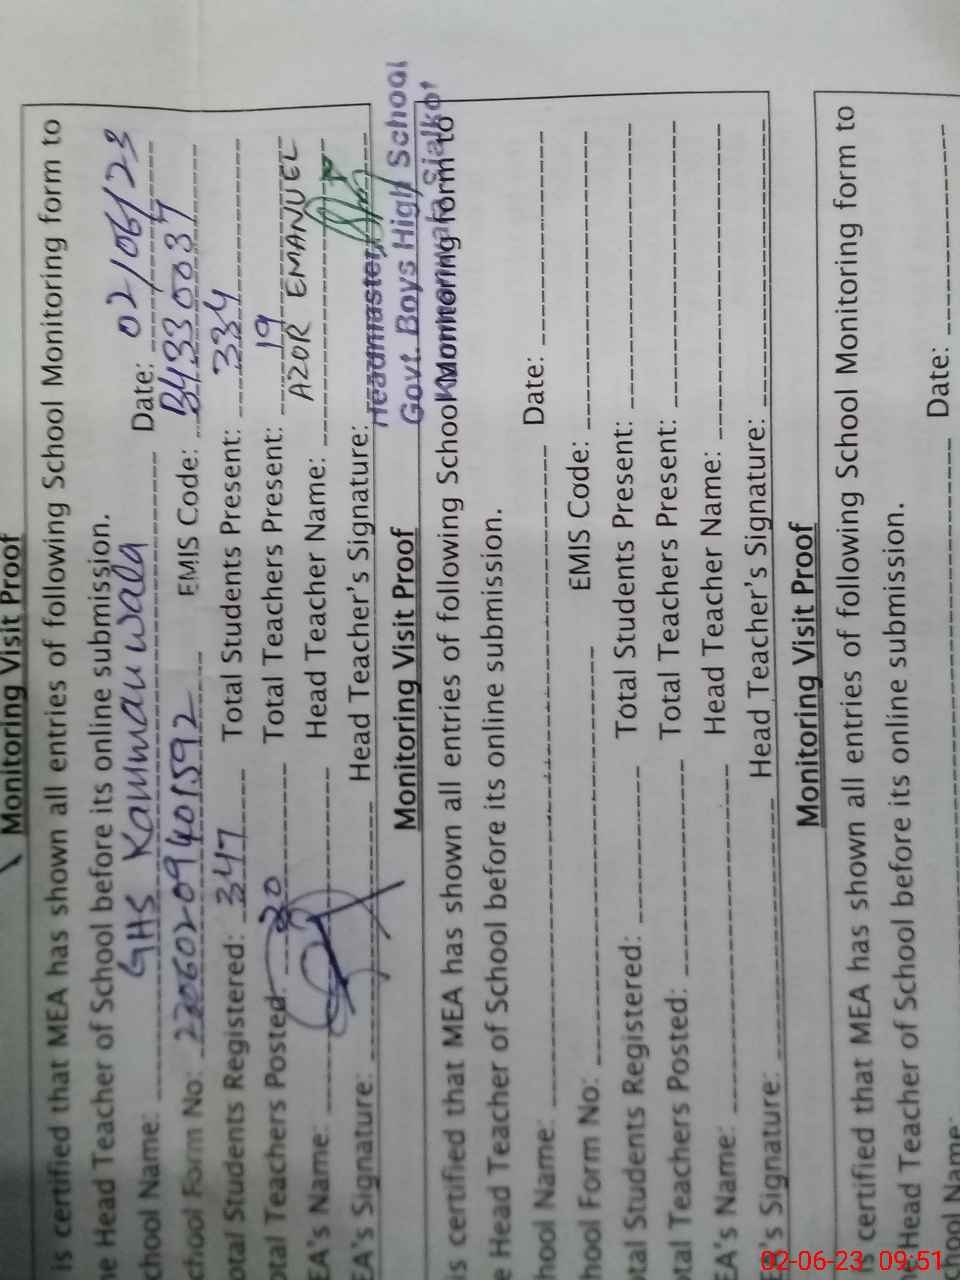 Monitoring Visit Proof
is certified that MEA has shown all entries of following School Monitoring form to
he Head Teacher of School before its online submission.
chool Name: GHS Kammanwala Date: 02/06/23
chool Form No: 23060209401592 EMIS Code: 34330034
otal Students Registered: 347 Total Students Present: 334
otal Teachers Posted: 20 Total Teachers Present: 19
EA's Name: Head Teacher Name: AZOR EMANUEL
EA's Signature: Head Teacher's Signature:
Headmaster
Govt. Boys High School
Sialkot
Monitoring Visit Proof
is certified that MEA has shown all entries of following School Monitoring form to
e Head Teacher of School before its online submission.
hool Name: Date:
hool Form No: EMIS Code:
tal Students Registered: Total Students Present:
tal Teachers Posted: Total Teachers Present:
EA's Name: Head Teacher Name:
's Signature: Head Teacher's Signature:
Monitoring Visit Proof
is certified that MEA has shown all entries of following School Monitoring form to
Head Teacher of School before its online submission.
chool Name: Date:
02-06-23 09:51